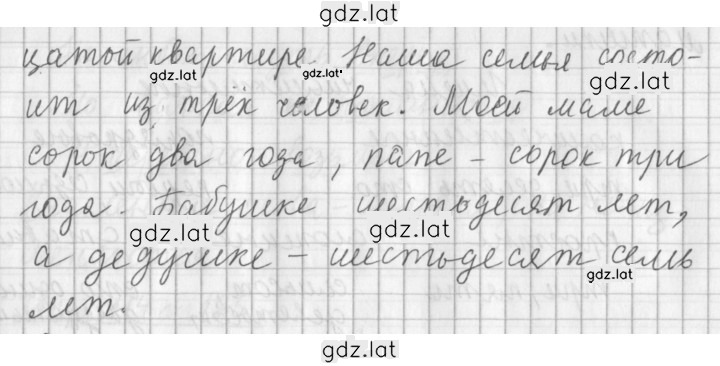 gdz.lat
цатой квартире. Наша семья состо-
gdz.lat gdz.lat gdz.lat
ит из трёх человек. Моей маме
сорок два года, папе – сорок три
года. Бабушке – шестьдесят лет,
gdz.lat gdz.lat
а дедушке – шестьдесят семь
gdz.lat
лет.
gdz.lat